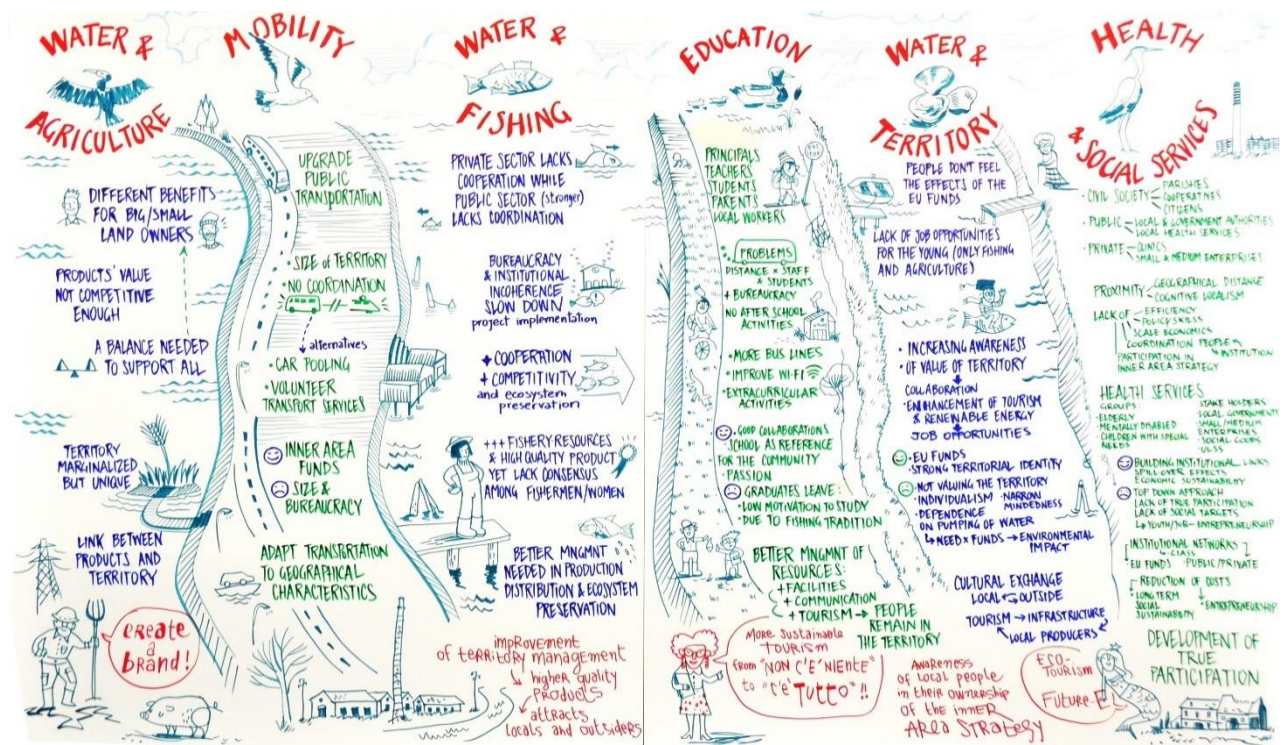 WATER &
AGRICULTURE
DIFFERENT BENEFITS
FOR BIG/SMALL
LAND OWNERS
PRODUCTS' VALUE
NOT COMPETITIVE
ENOUGH
A BALANCE NEEDED
TO SUPPORT ALL
TERRITORY
MARGINALIZED
BUT UNIQUE
LINK BETWEEN
PRODUCTS AND
TERRITORY
create
a
brand!
MOBILITY
UPGRADE
PUBLIC
TRANSPORTATION
• SIZE OF TERRITORY
• NO COORDINATION
alternatives
• CAR POOLING
• VOLUNTEER
TRANSPORT SERVICES
INNER AREA
FUNDS
SIZE &
BUREAUCRACY
ADAPT TRANSPORTATION
TO GEOGRAPHICAL
CHARACTERISTICS
WATER &
FISHING
PRIVATE SECTOR LACKS
COOPERATION WHILE
PUBLIC SECTOR (stronger)
LACKS COORDINATION
BUREAUCRACY
& INSTITUTIONAL
INCOHERENCE
SLOW DOWN
project implementation
+ COOPERATION
+ COMPETITIVITY
and ecosystem
preservation
+++ FISHERY RESOURCES
& HIGH QUALITY PRODUCT
YET LACK CONSENSUS
AMONG FISHERMEN/WOMEN
BETTER MNGMNT
NEEDED IN PRODUCTION
DISTRIBUTION & ECOSYSTEM
PRESERVATION
improvement
of territory management
→ higher quality
products
→ attracts
locals and outsiders
EDUCATION
PRINCIPALS
TEACHERS
STUDENTS
PARENTS
LOCAL WORKERS
PROBLEMS
DISTANCE × STAFF
× STUDENTS
+ BUREAUCRACY
NO AFTER SCHOOL
ACTIVITIES
• MORE BUS LINES
• IMPROVE WI-FI
• EXTRACURRICULAR
ACTIVITIES
• GOOD COLLABORATIONS
SCHOOL AS REFERENCE
FOR THE COMMUNITY
• PASSION
GRADUATES LEAVE:
• LOW MOTIVATION TO STUDY
• DUE TO FISHING TRADITION
BETTER MNGMNT OF
RESOURCES:
+ FACILITIES
+ COMMUNICATION
+ TOURISM → PEOPLE
REMAIN IN
THE TERRITORY
More sustainable
tourism
from "NON C'E' NIENTE"
to "C'E' TUTTO"!!
WATER &
TERRITORY
PEOPLE DON'T FEEL
THE EFFECTS OF THE
EU FUNDS
LACK OF JOB OPPORTUNITIES
FOR THE YOUNG (ONLY FISHING
AND AGRICULTURE)
• INCREASING AWARENESS
• OF VALUE OF TERRITORY
COLLABORATION
• ENHANCEMENT OF TOURISM
& RENEWABLE ENERGY
JOB OPPORTUNITIES
• EU FUNDS
• STRONG TERRITORIAL IDENTITY
• NOT VALUING THE TERRITORY
• INDIVIDUALISM • NARROW
MINDEDNESS
• DEPENDENCE
ON PUMPING OF WATER
↳ NEED × FUNDS → ENVIRONMENTAL
IMPACT
CULTURAL EXCHANGE
LOCAL OUTSIDE
TOURISM → INFRASTRUCTURE
LOCAL PRODUCERS
Awareness
of local people
in their ownership
of the inner
AREA STRATEGY
HEALTH
& SOCIAL SERVICES
• CIVIL SOCIETY PARISHES
COOPERATIVES
CITIZENS
• PUBLIC LOCAL & GOVERNMENT AUTHORITIES
LOCAL HEALTH SERVICES
• PRIVATE CLINICS
SMALL & MEDIUM ENTERPRISES
PROXIMITY GEOGRAPHICAL DISTANCE
COGNITIVE LOCALISM
LACK OF EFFICIENCY
POLICY SKILLS
SCALE ECONOMICS
COORDINATION PEOPLE
INSTITUTION
PARTICIPATION IN
INNER AREA STRATEGY
HEALTH SERVICES
GROUPS:
• ELDERLY
• MENTALLY DISABLED
• CHILDREN WITH SPECIAL
NEEDS
STAKE HOLDERS
• LOCAL GOVERNMENTS
• SMALL/MEDIUM
ENTERPRISES
• SOCIAL COOPS
• ULSS
BUILDING INSTITUTIONAL LINKS
SPILL OVER EFFECTS
ECONOMIC SUSTAINABILITY
TOP DOWN APPROACH
LACK OF TRUE PARTICIPATION
LACK OF SOCIAL TARGETS
↳ YOUTH/ ENTREPRENEURSHIP
• INSTITUTIONAL NETWORKS
CLASS
EU FUNDS • PUBLIC/PRIVATE
• REDUCTION OF COSTS
• LONG TERM
SOCIAL
SUSTAINABILITY
• ENTREPRENEURSHIP
DEVELOPMENT OF
TRUE
PARTICIPATION
ECO-
TOURISM
FUTURE